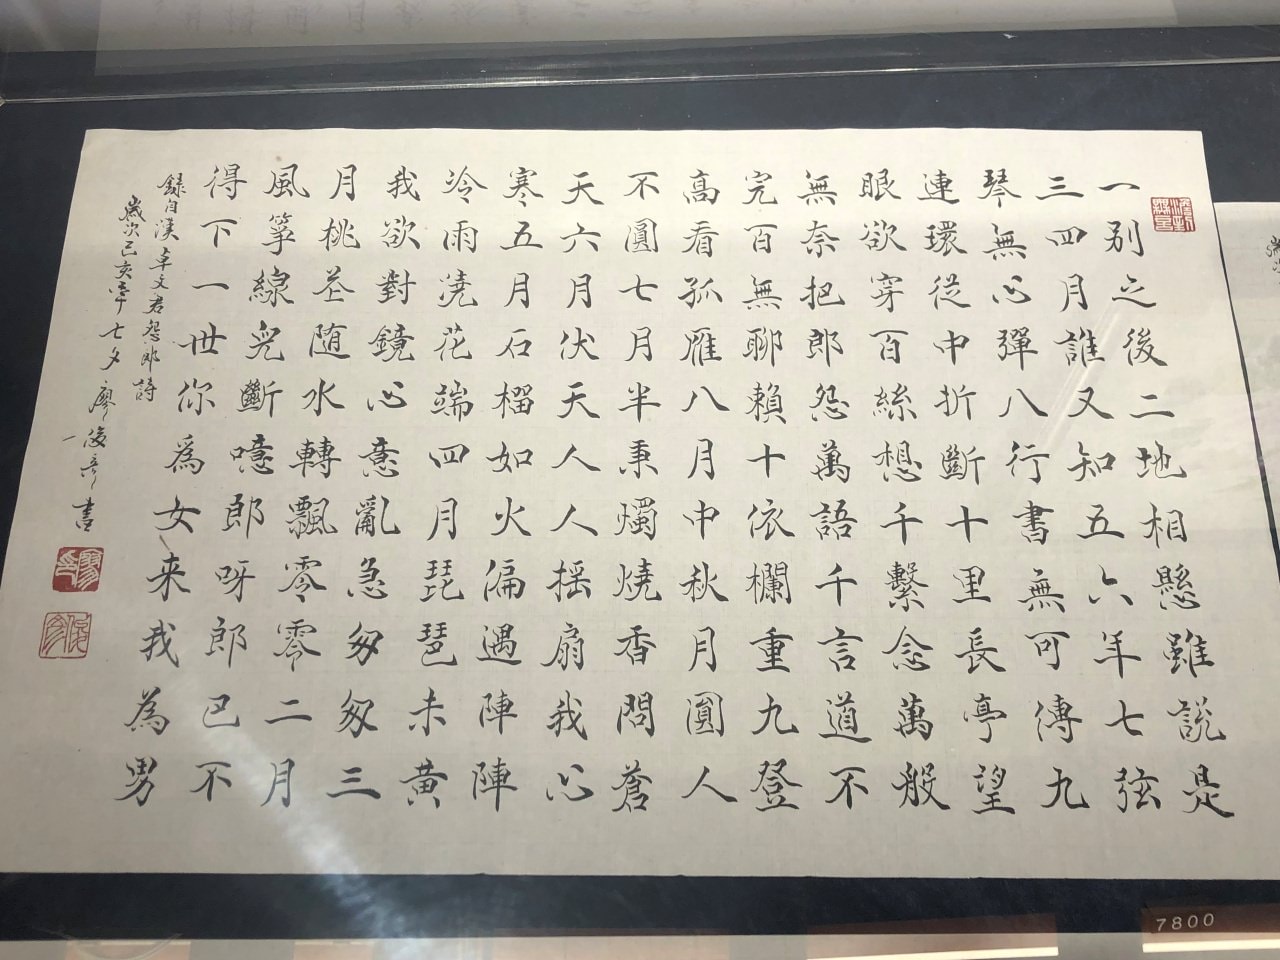 一別之後二地相懸雖說是
三四月誰又知五六年七弦
琴無心彈八行書無可傳九
連環從中折斷十里長亭望
眼欲穿百絲想千繫念萬般
無奈把郎怨萬語千言道不
完百無聊賴十依欄重九登
高看孤雁八月中秋月圓人
不圓七月半秉燭燒香問蒼
天六月伏天人人搖扇我心
寒五月石榴如火偏遇陣陣
冷雨澆花端四月琵琶未黃
我欲對鏡心意亂急匆匆三
月桃花随水轉飄零零二月
風箏線兒斷噫郎呀郎巴不
得下一世你為女来我為男
錄自漢卓文君怨郎詩
歲次己亥年七夕廖俊彥書
7800